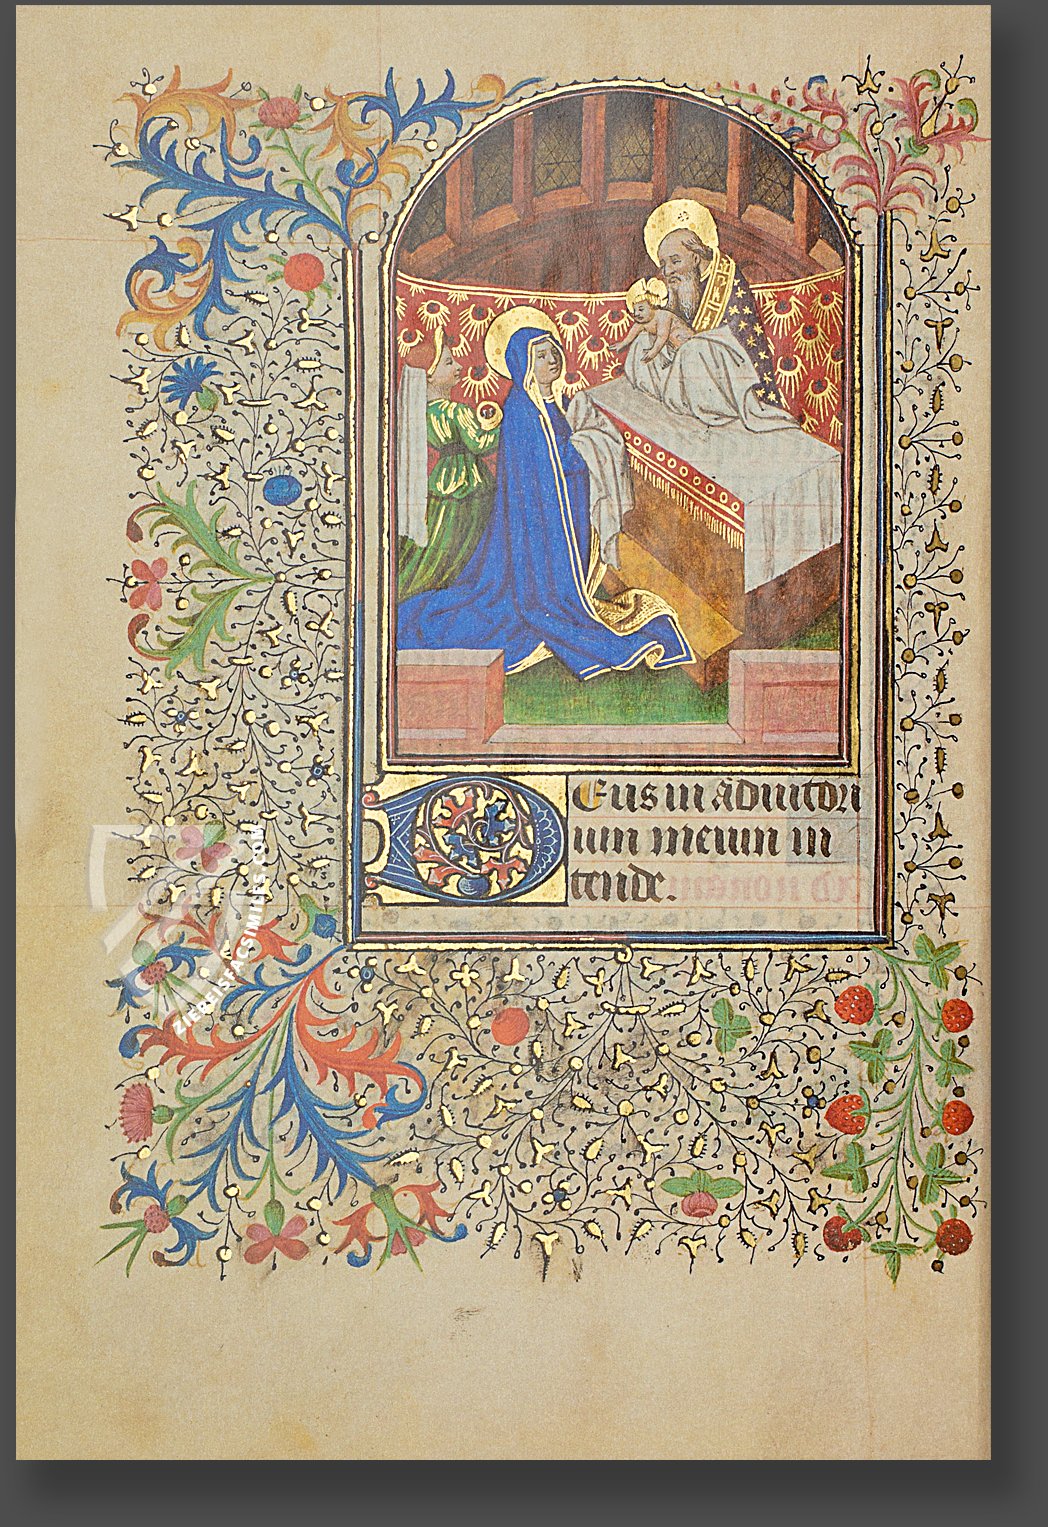 Deus in adiutori
um meum in
tende.
ZIEREIS FACSIMILES.COM